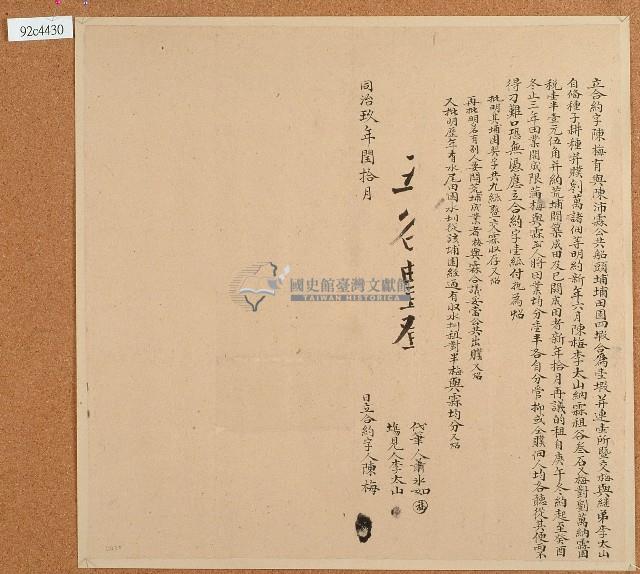 92c4430
立合約字陳梅有與陳沛霖公共船頭埔埔田園四塅合為壹塅并連壹所暨交梅與縫弟李太山
自俻種子耕種并贌劉萬諸佃等明約新年六月陳梅李太山納霖租谷叁石又梅對劉萬納霖園
稅壹半壹元伍角并納荒埔開築成田及已開成田者新年拾月再議的租自庚午冬約起至癸酉
冬止三年田業開成限滿梅與霖二人將田業均分壹半各自分管抑或全贌佃人均各聽從其便不
得刁難口恐無憑應立合約字壹紙付执為炤
批明其埔園契字共九紙暨交霖收存又炤
再批明若有別人要開荒埔成業者梅與霖合議妥當公共出贌又炤
又批明歷年有水尾田園水圳從該埔園經過有收水圳租對半梅與霖均分又炤
同治玖年閏拾月
代筆人蕭永如
塲見人李太山
日立合約字人陳梅
國史館臺灣文獻館
TAIWAN HISTORICA